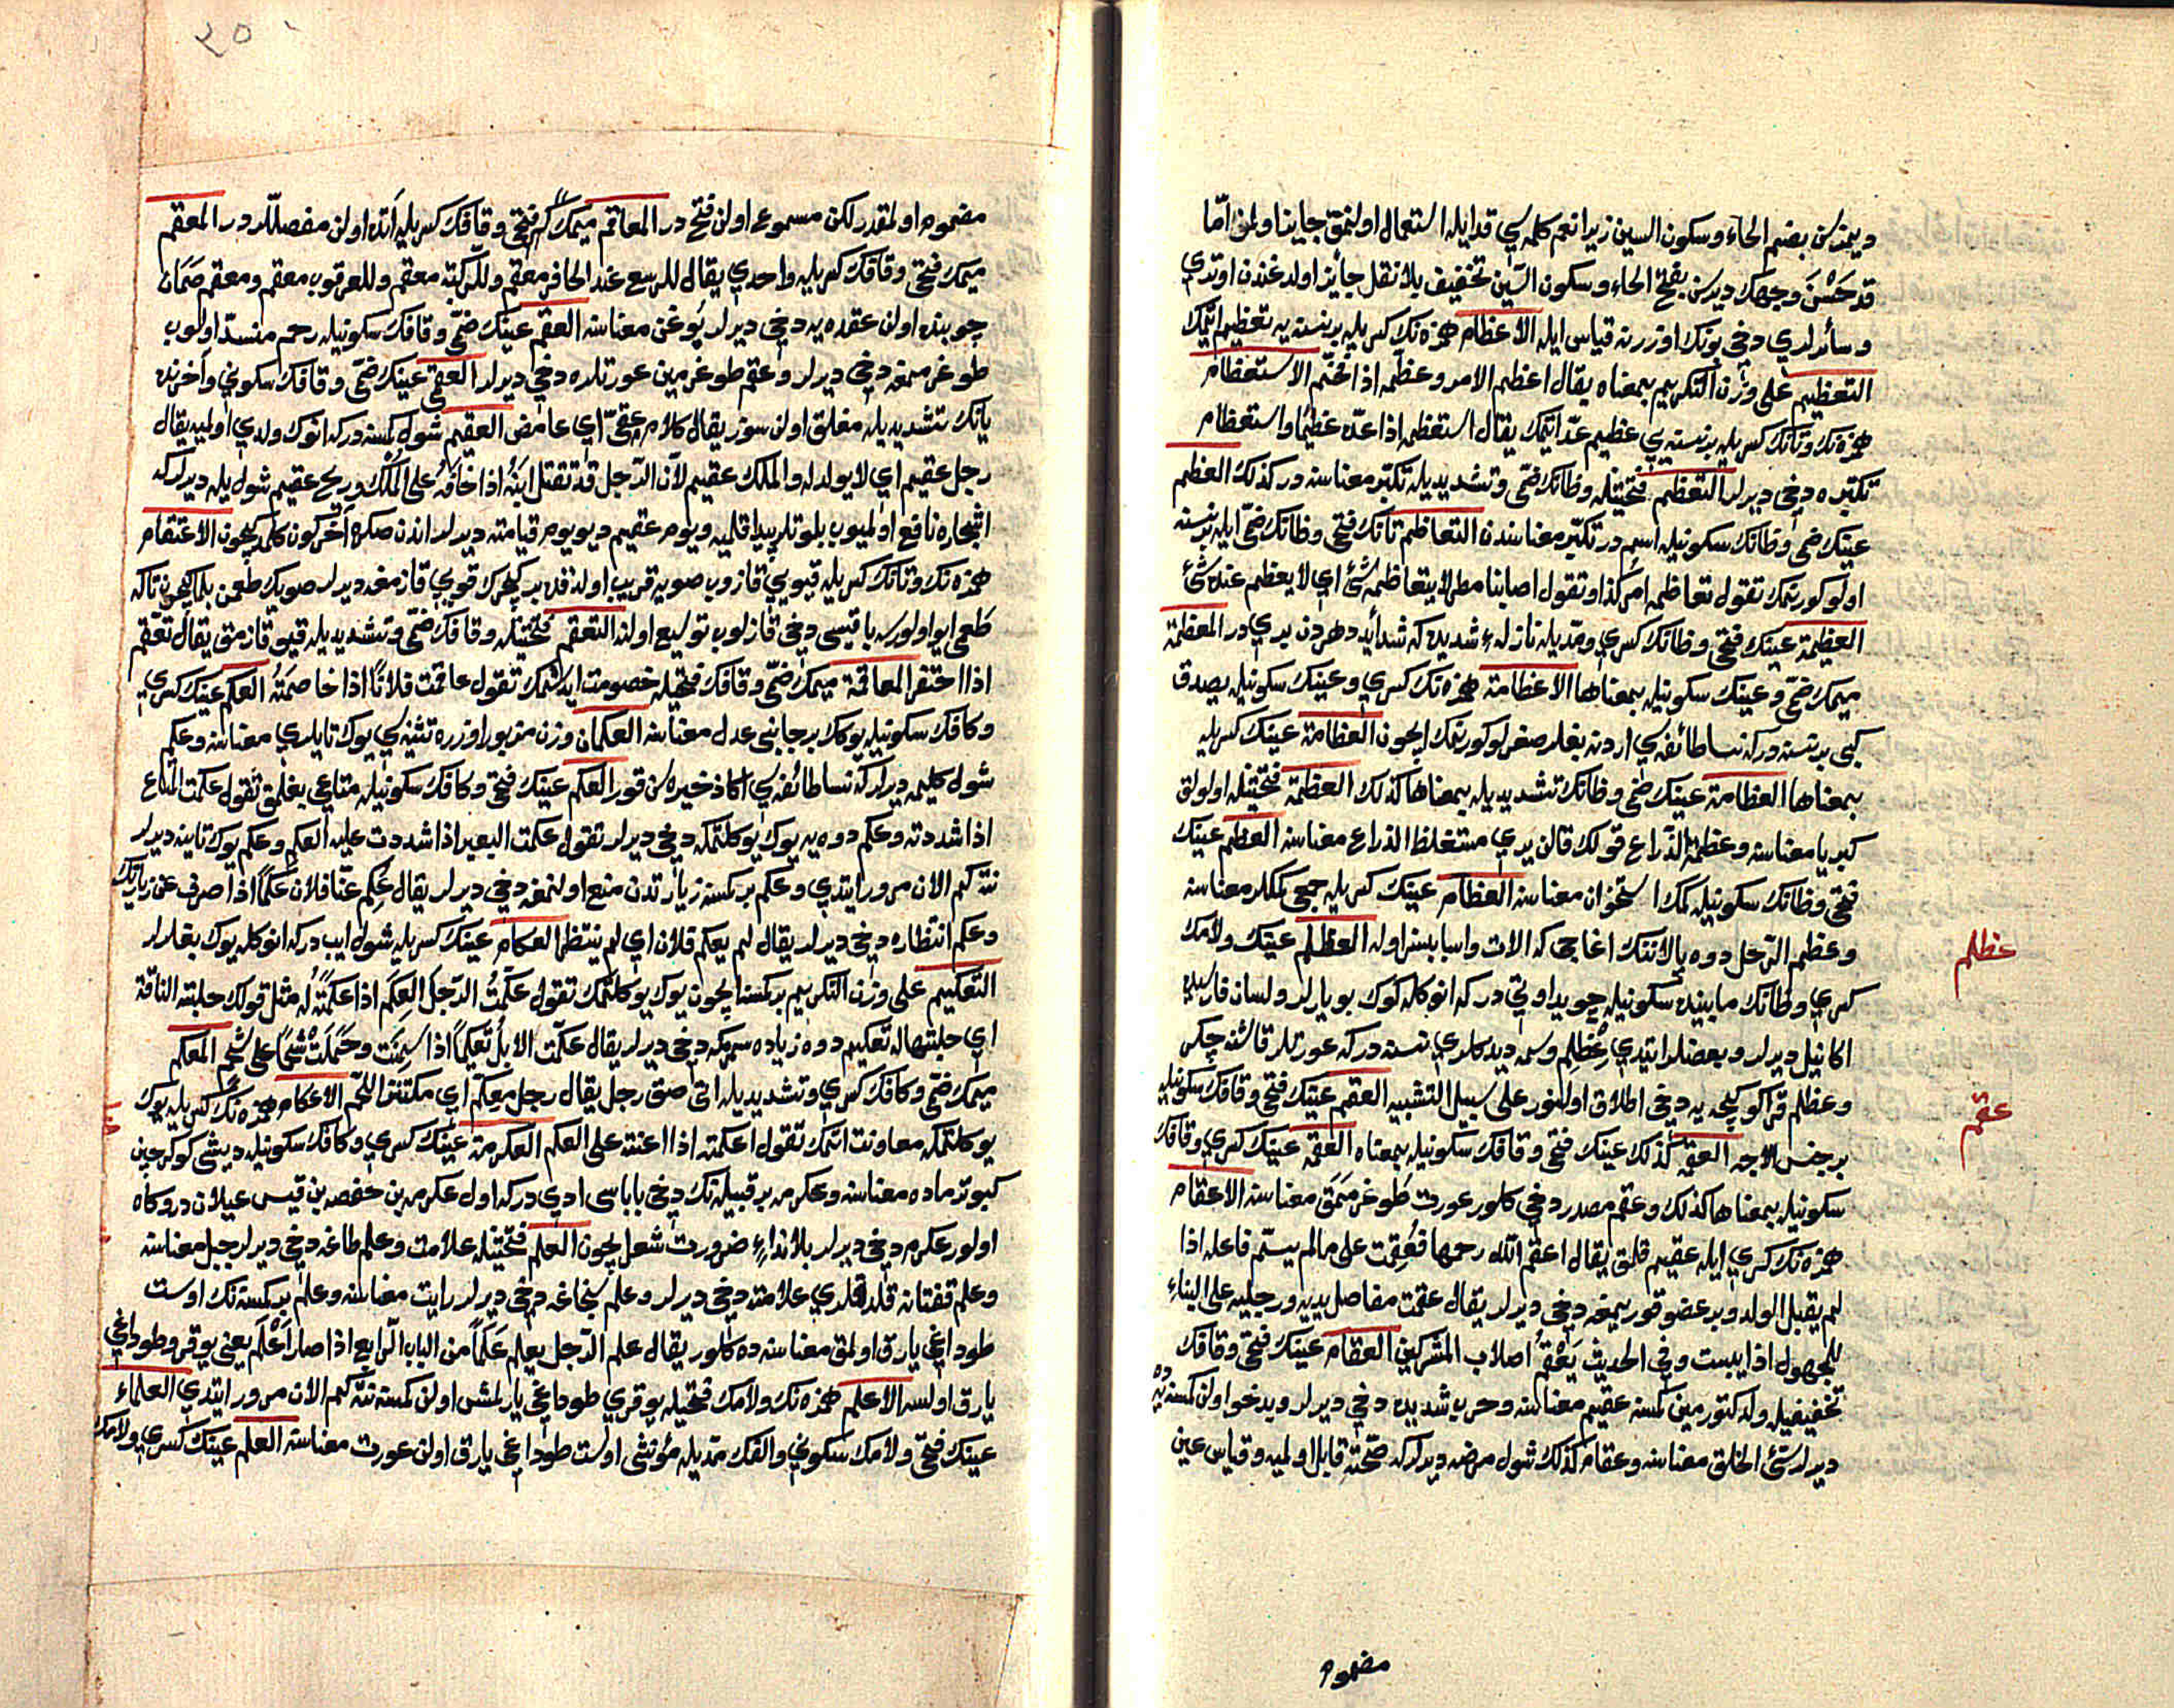 ديمزسن بضم الحاء وسكون السين زيرا نعم كلمه سي قد ايله استعمال اولنمق جايز اولمز امّا
قد حَسْنَ وجهك ديرسن بفتح الحاء وسكون السّين تخفيف بلا نقل جائز اولدغندن اوتري
وسائرلري دخي بونك اوزرينه قياس ايله الاعظام همزه نك كسريله بر نسنه يه تعظيم ايتمك
التعظيم على وزن التكريم بمعناه يقال اعظم الامر وعظّمه اذا فخّمه الاستعظام
همزه نك وتانك كسريله بر نسنه يي عظيم عدّ ايتمك يقال استعظمه اذا عدّه عظيمًا واستعظام
تكبّره دخي ديرلر التعظم فتحتيله وظانك ضمّي وتشديديله تكبّر معناسنه در كذلك العظم
عينك ضمي وظانك سكونيله اسم در تكبّر معناسندن التعاظم تانك فتحي وظانك ضمّي ايله بر نسنه
اولو كورنمك تقول تعاظمه امر كذا وتقول اصابنا مطر لا يتعاظمه شئ اي لا يعظم عنده شئ
العظيمة عينك فتحي وظانك كسري ومدّيله نازلهء شديده كه شدائد دهردن بري در المعظمة
ميمك ضمّي وعينك سكونيله بمعناها الاعظامة همزه نك كسري وعينك سكونيله يصدق
كبي بر نسنه در كه نسا طائفه سي اردنه بغلر صغرلو كورنمك ايچون العظامة عينك كسريله
بمعناها العظامة عينك ضمي وظانك تشديديله بمعناها كذلك العظمة فتحتيله اولولق
كبريا معناسنه وعظمة الذّراع قولك قالن يري مستغلظ الذراع معناسنه العظم عينك
فتحي وظانك سكونيله كمك استخوان معناسنه العظام عينك كسريله جمعي كمكلر معناسنه
وعظم الرّحل دوه پالاننك اغاجي كه الات واسبابسز اوله العظلم عينك ولامك
كسري وظانك مابينده سكونيله چويد اوتي در كه انوكله كوك بويارلر ولسان فارسيده
اكانيل ديرلر وبعضلر ايتدي عِظلِم وسمه ديدكلري نسنه در كه عورتلر قاشنه چكر
وعظلم قرا كو كيجه يه دخي اطلاق اولنور على سبيل التشبيه العقم عينك فتحي وقافك سكونيله
بر جنس الاجه العقمة كذلك عينك فتحي وقافك سكونيله بمعناه العقمة عينك كسري وقافك
سكونيله بمعناها كذلك وعقم مصدر دخي كلور عورت طوغرمامق معناسنه الاعقام
همزه نك كسري ايله عقيم قلمق يقال اعقم الله رحمها فعُقِمت على مالم يسمّ فاعله اذا
لم يقبل الولد وبر عضو قوريمغه دخي ديرلر يقال عقمت مفاصل يديه ورجليه على البناء
للمجهول اذا يبست وفي الحديث يُعْقَمُ اصلاب المشركين العقام عينك فتحي وقافك
تخفيفيله ولد كتورمين كمسنه عقيم معناسنه وحرب شديده دخي ديرلر ويدخو اولن كمسنه يه ده
ديرلر سئ الخلق معناسنه وعقام كذلك شول مرضه ديرلر كه صحّته قابل اولميه وقياس عين
عظلم
عقم
مضموم
٢٥٠
مضموم اولمقدر لكن مسموع اولن فتح در المعاقم ميمك فتحي وقافك كسريله آتده اولن مفصللردر المعقم
ميمك فتحي وقافك كسريله واحدي يقال للرسغ عند الحافر معقم وللرّكبة معقم وللعرقوب معقم ومعقم صمان
چوبنده اولن عقده يه دخي ديرلر بوغن معناسنه العقم عينك ضمّي وقافك سكونيله رحم منسدّ اولوب
طوغرممغه دخي ديرلر وعقم طوغرمين عورتلره دخي ديرلر العقمي عينك ضمّي وقافك سكوني وآخرنده
يانك تشديديله مغلق اولن سوز يقال كلام عقميّ اي غامض العقيم شول كمسنه در كه انوك ولدي اولميه يقال
رجل عقيم اي لا يولد له والملك عقيم لانّ الرّجل قد تقتل ابنه اذا خافه على المُلك وريح عقيم شول يله ديرلر كه
اشجاره نافع اولميوب بلوتلر پيدا قلميه ويوم عقيم ديو يوم قيامته ديرلر اندن صكره آخر كون كلمديكيچون الاعتقام
همزه نك وتانك كسريله قيويي قازوب صويه قريب اولدقده بر كچرك قويي قازمغه ديرلر صويك طعمن بلمك ايچون تا كه
طعمي ايو اولورسه باقيسي دخي قازلوب توسيع اولنه التعقم فتحتيله وقافك ضمّي وتشديديله قيو قازمق يقال تعقم
اذا احتفر المعاقمة ميمك ضمّي وقافك فتحيله خصومت ايدشمك تقول عاقمت فلانًا اذا خاصمته العكم عينك كسري
وكافك سكونيله يوكك بر جانبي عدل معناسنه العكمان وزن مزبور اوزره تثنيه سي يوك تايلري معناسنه وعكم
شول كليمه ديرلر كه نسا طائفه سي اكا ذخيره سن قور العكم عينك فتحي وكافك سكونيله متاعي بغلمق تقول عكمت المتاع
اذا شددته وعكم دوه يه يوك يوكلتمكه دخي ديرلر تقول عكمت البعير اذا شددت عليه العكم وعكم يوك تاينه ديرلر
نته كم الان مرور ايتدي وعكم بر كمسنه زيارتدن منع اولنمغه دخي ديرلر يقال عُكِم عنّا فلان عكمًا اذا صرف عن زيارتك
وعكم انتظاره دخي ديرلر يقال لم يعكم فلان اي لم ينتظر العكام عينك كسريله شول ايپ در كه انوكله يوك بغلرلر
التعكيم على وزن التكريم بر كمسنه ايچون يوك يوكلتمك تقول عكّمتُ الرّجل العِكم اذا عكمته له مثل قولك حلبته النّاقة
اي حلبتها له تعكيم دوه زياده سمرمكه دخي ديرلر يقال عكّمت الابل تعكيمًا اذا سمنت وحملت شحمًا على شحم المعكم
ميمك ضمّي وكافك كسري وتشديديله اتي صق رجل يقال رجل معكّم اي مكتنز اللحم الاعكام همزه نك كسريله يوك
يوكلتمكه معاونت اتمك تقول اعكمته اذا اعنته على العكم العكرمة عينك كسري وكافك سكونيله ديشي كوكرجين
كبوتر ماده معناسنه وعكرمه بر قبيله نك دخي باباسي ادي در كه اول عكرمه بن خصفه بن قيس عيلان در وكاه
اولور عكرم دخي ديرلر بلا نداء ضرورت شعر ايچون العلم فتحتيله علامت وعلم طاغه دخي ديرلر جبل معناسنه
وعلم قفتانه قلدقلري علامته دخي ديرلر وعلم سنجاغه دخي ديرلر رايت معناسنه وعلم بر كمسنه نك اوست
طوداغي يارق اولمق معناسنه ده كلور يقال علم الرّجل يعلم عَلَمًا من الباب الرّابع اذا صار اَعْلَم يعني يوقرو طوداغي
يارق اولسه الاعلم همزه نك ولامك فتحيله يوقري طوداغي يارلمش اولن كمسنه نته كم الان مرور ايتدي العلماء
عينك فتحي ولامك سكوني والفك مدّيله مؤنثي اوست طوداغي يارق اولن عورت معناسنه العلم عينك كسري ولامك